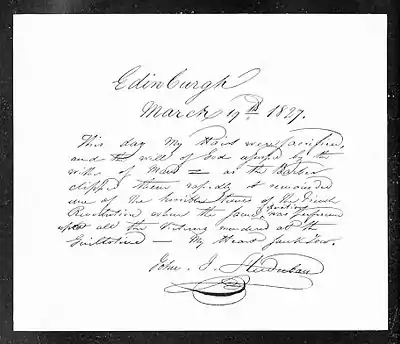 Edinburgh
March 19th 1827.
This day My Hairs were sacrificed,
and the will of God usurped by the
wishes of Man = as the Barber
clipped them rapidly it reminded
me of the horrible times of the French
Revolution when the same was performed
upon all the Victims murdered at the
Guillotine — My Heart sunk low.
John. J. Audubon